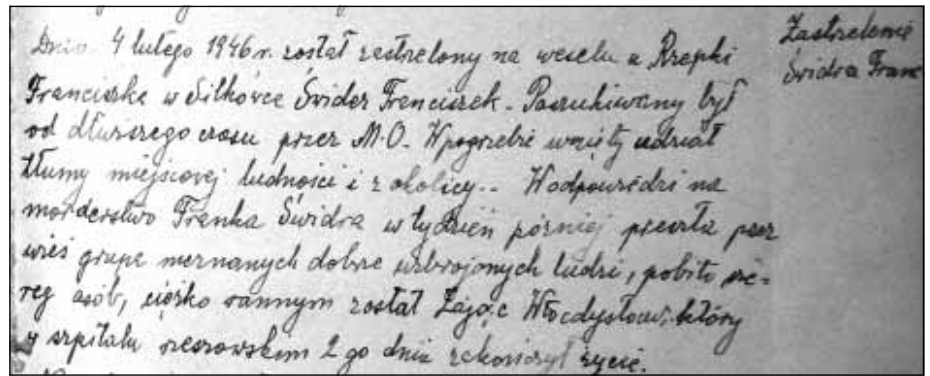 Dnia 4 lutego 1946 r. został zastrzelony na weselu u Rzepki
Franciszka w Siłkówce Świder Franciszek - Poszukiwany był
od dłuższego czasu przez M.O. W pogrzebie wzięły udział
tłumy miejscowej ludności i z okolicy.. W odpowiedzi na
morderstwo Franka Świdra w tydzień później przeszła przez
wieś grupa nieznanych dobrze uzbrojonych ludzi, pobito sze-
reg osób, ciężko rannym został Zając Władysław, który
w szpitalu rzeszowskim 2 go dnia zakończył życie.
Zastrzelenie
Świdra Franc